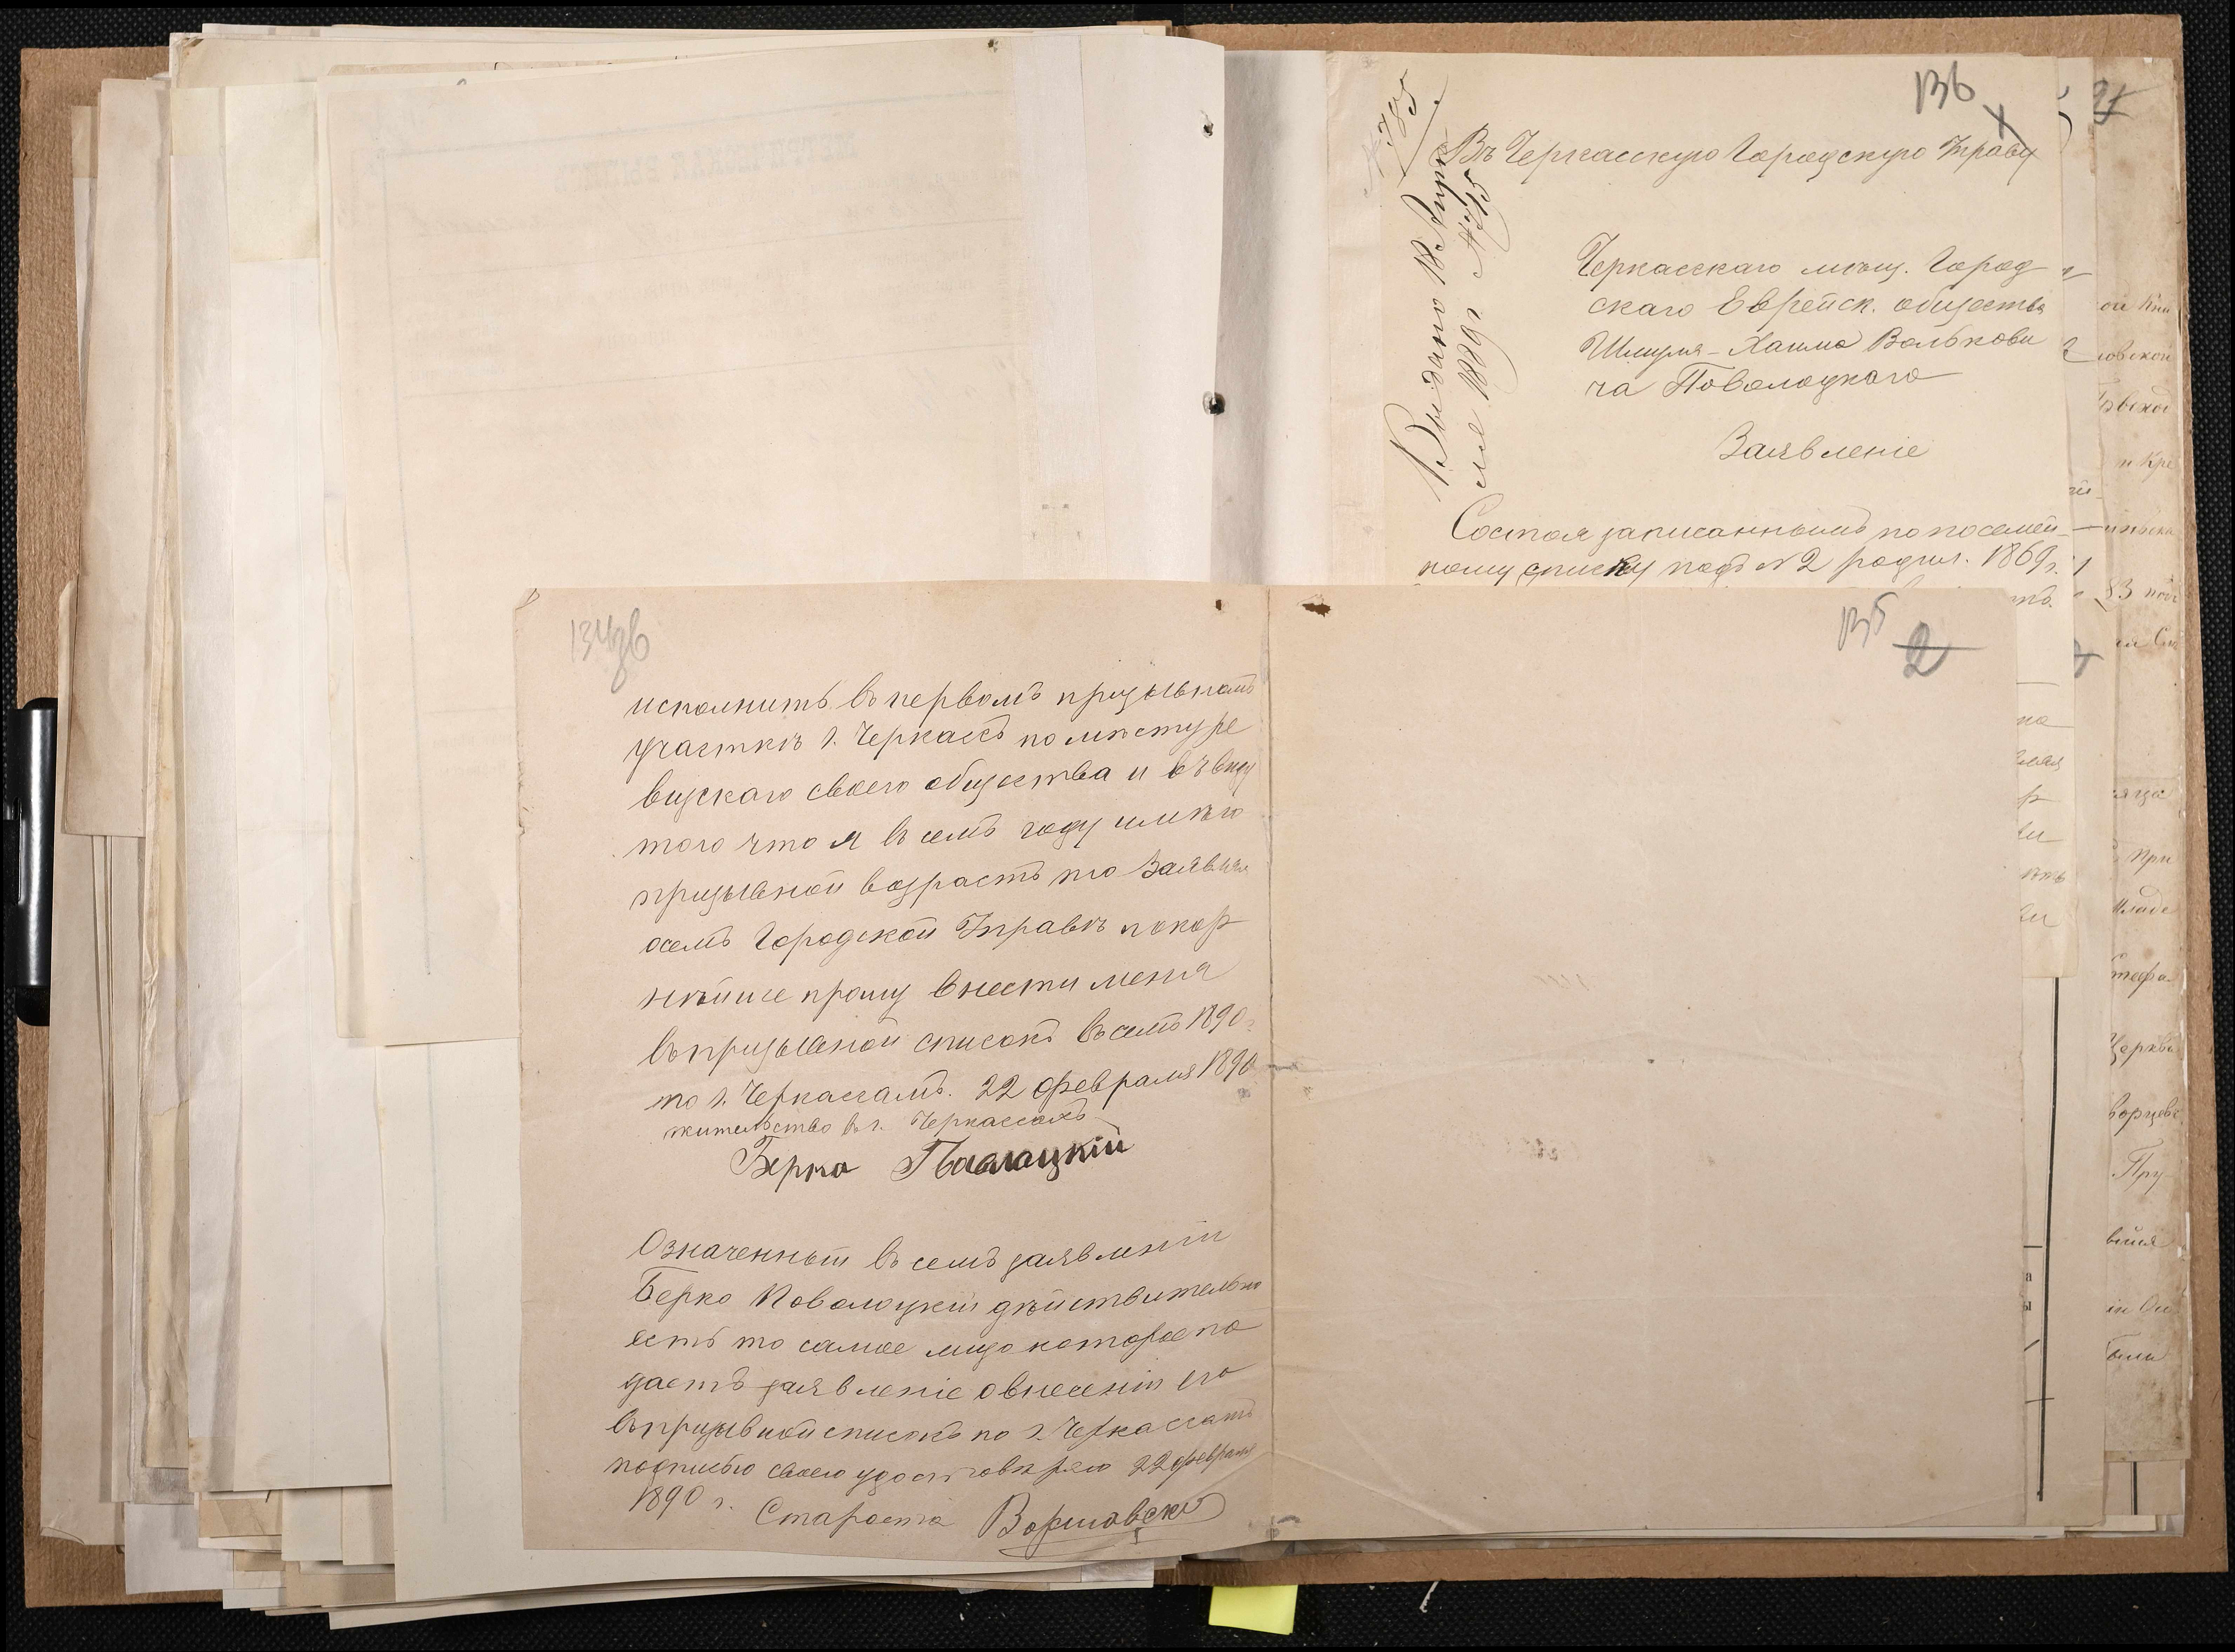 134зв
исполнить въ первомъ призывномъ
участкѣ г. Черкассъ по мѣсту ре
визскаго своего общества и въ виду
того что я въ семъ году имѣю
призывной возрастъ то Заявляя
о семъ Городской Управѣ покор
нѣйше прошу внести меня
въ призывной списокъ въ семъ 1890 г
по г. Черкассамъ. 22 февраля 1890
жительство въ г. Черкассахъ
Берко Поволоцкій
Означенный въ семъ заявленіи
Берко Поволоцкій дѣйствительно
есть то самое лицо которое по
даетъ заявленіе о внесеніи его
въ призывной списокъ по г. Черкассамъ
подписью своею удостовѣряю 22 февраля
1890 г. Староста Варшавскій
136
Въ Черкасскую Городскую Управу
Черкасскаго мѣщ. Город
скаго Еврейск. общества
Шмуля-Хаима Вольково
ча Поволоцкаго
Заявленіе
Состоя записаннымъ по посемей
ному списку подъ № 2 родил. 1869 г.
Выдано 18 Апрѣ
ля 1889 г № 745
785
135
2